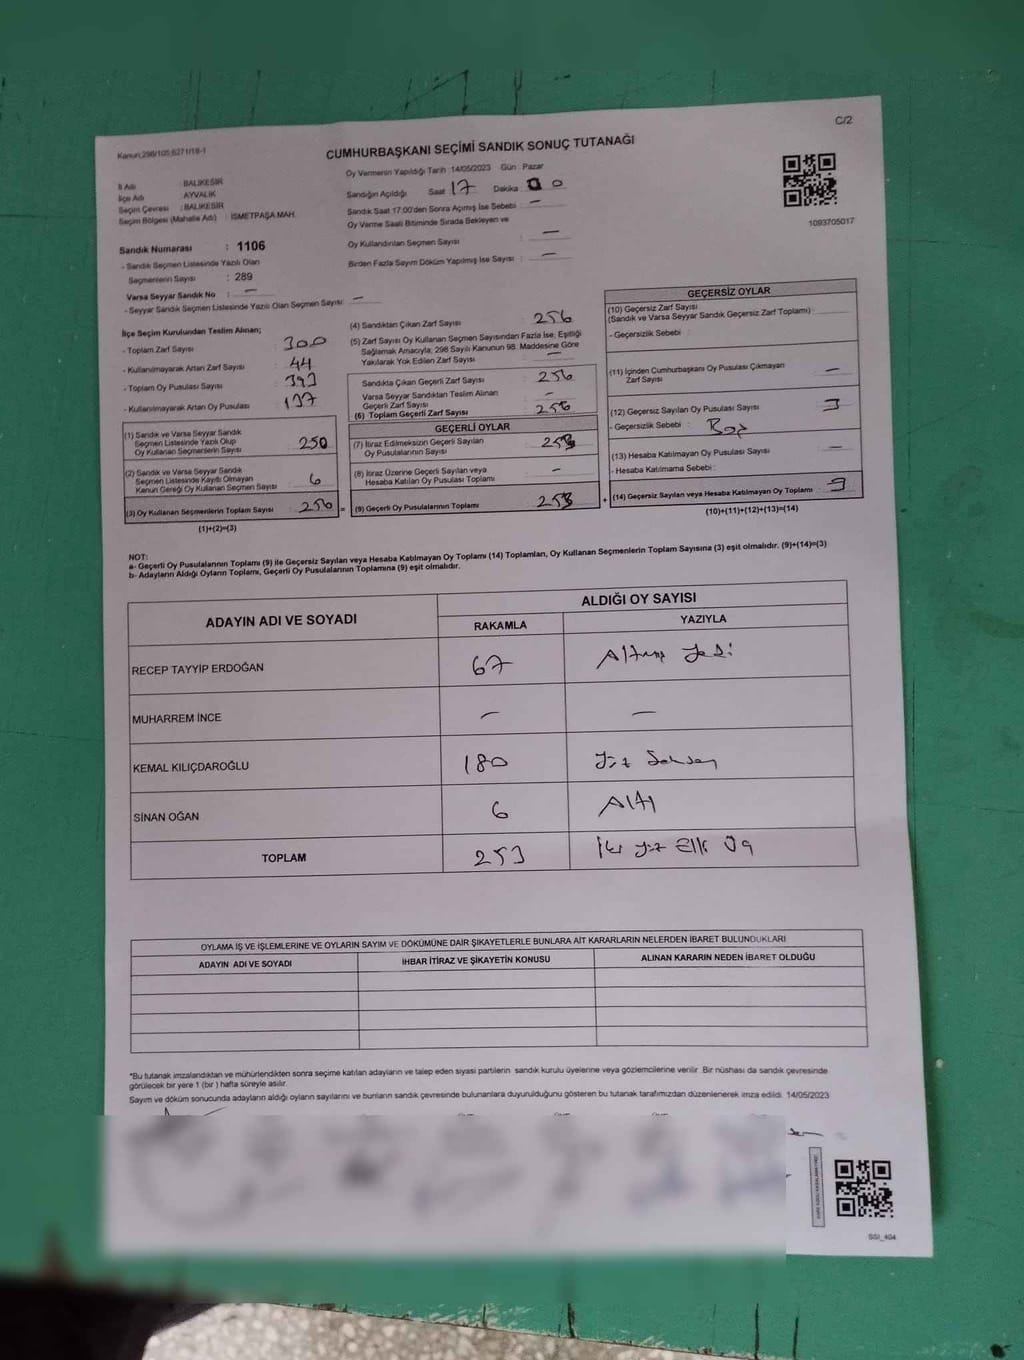 C/2
Kanun:298/105,6271/18-1
CUMHURBAŞKANI SEÇİMİ SANDIK SONUÇ TUTANAĞI
İl Adı : BALIKESİR
İlçe Adı : AYVALIK
Seçim Çevresi : BALIKESİR
Seçim Bölgesi (Mahalle Adı) : İSMETPAŞA MAH.
Oy Vermenin Yapıldığı Tarih :14/05/2023 Gün : Pazar
Sandığın Açıldığı Saat 17 Dakika 0 0
Sandık Saat 17:00'den Sonra Açılmış İse Sebebi : —
Oy Verme Saati Bitiminde Sırada Bekleyen ve
Oy Kullandırılan Seçmen Sayısı : —
Birden Fazla Sayım Döküm Yapılmış İse Sayısı : —
1093705017
Sandık Numarası : 1106
- Sandık Seçmen Listesinde Yazılı Olan
Seçmenlerin Sayısı : 289
Varsa Seyyar Sandık No : —
- Seyyar Sandık Seçmen Listesinde Yazılı Olan Seçmen Sayısı: —
İlçe Seçim Kurulundan Teslim Alınan;
- Toplam Zarf Sayısı : 300
- Kullanılmayarak Artan Zarf Sayısı : 44
- Toplam Oy Pusulası Sayısı : 393
- Kullanılmayarak Artan Oy Pusulası : 137
(1) Sandık ve Varsa Seyyar Sandık
Seçmen Listesinde Yazılı Olup
Oy Kullanan Seçmenlerin Sayısı : 250
(2) Sandık ve Varsa Seyyar Sandık
Seçmen Listesinde Kayıtlı Olmayan
Kanun Gereği Oy Kullanan Seçmen Sayısı : 6
(3) Oy Kullanan Seçmenlerin Toplam Sayısı : 256 =
(1)+(2)=(3)
(4) Sandıktan Çıkan Zarf Sayısı : 256
(5) Zarf Sayısı Oy Kullanan Seçmen Sayısından Fazla İse; Eşitliği
Sağlamak Amacıyla; 298 Sayılı Kanunun 98. Maddesine Göre
Yakılarak Yok Edilen Zarf Sayısı : —
Sandıkta Çıkan Geçerli Zarf Sayısı : 256
Varsa Seyyar Sandıktan Teslim Alınan
Geçerli Zarf Sayısı : —
(6) Toplam Geçerli Zarf Sayısı : 256
GEÇERLİ OYLAR
(7) İtiraz Edilmeksizin Geçerli Sayılan
Oy Pusulalarının Sayısı : 253
(8) İtiraz Üzerine Geçerli Sayılan veya
Hesaba Katılan Oy Pusulası Toplamı : —
(9) Geçerli Oy Pusulalarının Toplamı : 253 +
GEÇERSİZ OYLAR
(10) Geçersiz Zarf Sayısı
(Sandık ve Varsa Seyyar Sandık Geçersiz Zarf Toplamı) :
- Geçersizlik Sebebi :
(11) İçinden Cumhurbaşkanı Oy Pusulası Çıkmayan
Zarf Sayısı : —
(12) Geçersiz Sayılan Oy Pusulası Sayısı : 3
- Geçersizlik Sebebi : Boş
(13) Hesaba Katılmayan Oy Pusulası Sayısı : —
- Hesaba Katılmama Sebebi :
(14) Geçersiz Sayılan veya Hesaba Katılmayan Oy Toplamı : 3
(10)+(11)+(12)+(13)=(14)
NOT:
a- Geçerli Oy Pusulalarının Toplamı (9) ile Geçersiz Sayılan veya Hesaba Katılmayan Oy Toplamı (14) Toplamları, Oy Kullanan Seçmenlerin Toplam Sayısına (3) eşit olmalıdır. (9)+(14)=(3)
b- Adayların Aldığı Oyların Toplamı, Geçerli Oy Pusulalarının Toplamına (9) eşit olmalıdır.
ADAYIN ADI VE SOYADI
ALDIĞI OY SAYISI
RAKAMLA YAZIYLA
RECEP TAYYİP ERDOĞAN 67 Altmış Yedi
MUHARREM İNCE — —
KEMAL KILIÇDAROĞLU 180 Yüz Seksen
SİNAN OĞAN 6 Altı
TOPLAM 253 İki Yüz Elli Üç
OYLAMA İŞ VE İŞLEMLERİNE VE OYLARIN SAYIM VE DÖKÜMÜNE DAİR ŞİKAYETLERLE BUNLARA AİT KARARLARIN NELERDEN İBARET BULUNDUKLARI
ADAYIN ADI VE SOYADI İHBAR İTİRAZ VE ŞİKAYETİN KONUSU ALINAN KARARIN NEDEN İBARET OLDUĞU
*Bu tutanak imzalandıktan ve mühürlendikten sonra seçime katılan adayların ve talep eden siyasi partilerin sandık kurulu üyelerine veya gözlemcilerine verilir. Bir nüshası da sandık çevresinde
görülecek bir yere 1 (bir ) hafta süreyle asılır.
Sayım ve döküm sonucunda adayların aldığı oyların sayılarını ve bunların sandık çevresinde bulunanlara duyurulduğunu gösteren bu tutanak tarafımızdan düzenlenerek imza edildi. 14/05/2023
SSI_404